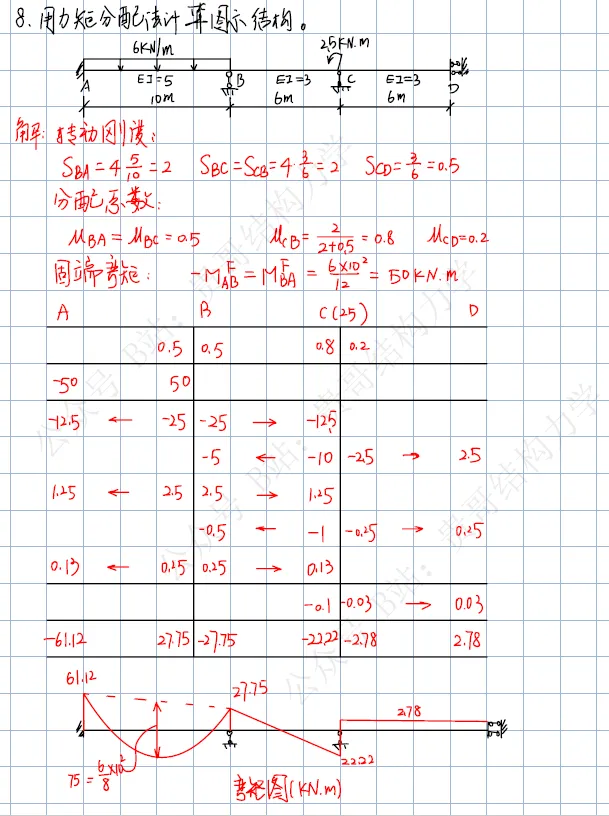 8. 用力矩分配法计算图示结构。
6KN/m 25KN.m
EI=5 EI=3 EI=3
A B C D
10m 6m 6m
解: 转动刚度:
S_BA = 4 5/10 = 2 S_BC = S_CB = 4·3/6 = 2 S_CD = 3/6 = 0.5
分配系数:
μ_BA = μ_BC = 0.5 μ_CB = 2/(2+0.5) = 0.8 μ_CD = 0.2
固端弯矩: -M_AB^F = M_BA^F = 6×10²/12 = 50KN.m
A B C(25) D
0.5 0.5 0.8 0.2
-50 50
-12.5 ← -25 -25 → -12.5
-5 ← -10 -2.5 → 2.5
1.25 ← 2.5 2.5 → 1.25
-0.5 ← -1 -0.25 → 0.25
0.13 ← 0.25 0.25 → 0.13
-0.1 -0.03 → 0.03
-61.12 27.75 -27.75 -22.22 -2.78 2.78
61.12
27.75
2.78
22.22
75 = 6/8 ×10²
弯矩图(KN.m)
公众号 B站: 贵哥结构力学
公众号 B站: 贵哥结构力学
公众号 B站: 贵哥结构力学